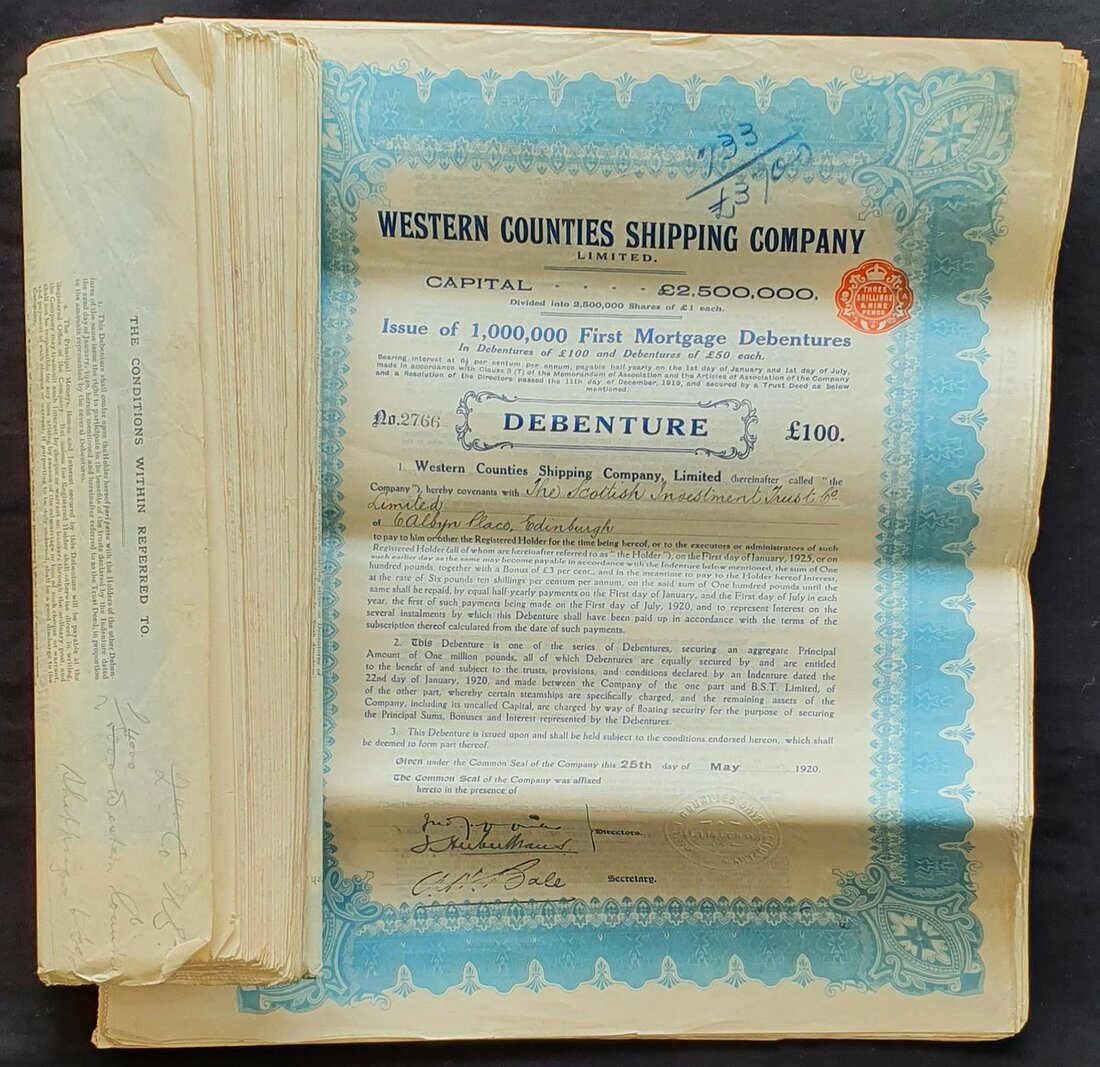 WESTERN COUNTIES SHIPPING COMPANY
LIMITED.
CAPITAL - - - - £2,500,000,
Divided into 2,500,000 Shares of £1 each.
THREE
SHILLINGS
& NINE
PENCE
Issue of 1,000,000 First Mortgage Debentures
In Debentures of £100 and Debentures of £50 each.
Bearing interest at 6½ per centum per annum, payable half-yearly on the 1st day of January and 1st day of July,
made in accordance with Clause 3 (T) of the Memorandum of Association and the Articles of Association of the Company
and a Resolution of the Directors passed the 11th day of December, 1919, and secured by a Trust Deed as below
mentioned.
No. 2766 DEBENTURE £100.
1. Western Counties Shipping Company, Limited (hereinafter called "the
Company"), hereby covenants with The Scottish Investment Trust Co
Limited
of 6 Albyn Place, Edinburgh
to pay to him or other the Registered Holder for the time being hereof, or to the executors or administrators of such
Registered Holder (all of whom are hereinafter referred to as "the Holder"), on the First day of January, 1925, or on
such earlier day as the same may become payable in accordance with the Indenture below mentioned, the sum of One
hundred pounds, together with a Bonus of £3 per cent., and in the meantime to pay to the Holder hereof Interest,
at the rate of Six pounds ten shillings per centum per annum, on the said sum of One hundred pounds until the
same shall be repaid, by equal half-yearly payments on the First day of January, and the First day of July in each
year, the first of such payments being made on the First day of July, 1920, and to represent Interest on the
several instalments by which this Debenture shall have been paid up in accordance with the terms of the
subscription thereof calculated from the date of such payments.
2. This Debenture is one of the series of Debentures, securing an aggregate Principal
Amount of One million pounds, all of which Debentures are equally secured by and are entitled
to the benefit of and subject to the trusts, provisions, and conditions declared by an Indenture dated the
22nd day of January, 1920, and made between the Company of the one part and B.S.T. Limited, of
of the other part, whereby certain steamships are specifically charged, and the remaining assets of the
Company, including its uncalled Capital, are charged by way of floating security for the purpose of securing
the Principal Sums, Bonuses and Interest represented by the Debentures.
3. This Debenture is issued upon and shall be held subject to the conditions endorsed hereon, which shall
be deemed to form part thereof.
Given under the Common Seal of the Company this 25th day of May 1920.
The Common Seal of the Company was affixed
hereto in the presence of
Directors.
Secretary.
THE CONDITIONS WITHIN REFERRED TO.
1. This Debenture shall confer upon the Holder hereof pari passu with the Holders of the other Deben-
tures of the same issue the right to participate in the benefits of the trusts declared by the Indenture dated
the 22nd day of January, 1920, herein mentioned and hereinafter referred to as the Trust Deed, in proportion
to the amounts represented by the several Debentures.
2. The Principal Moneys, Bonus and Interest secured by this Debenture will be payable at the
Registered Office of the Company.